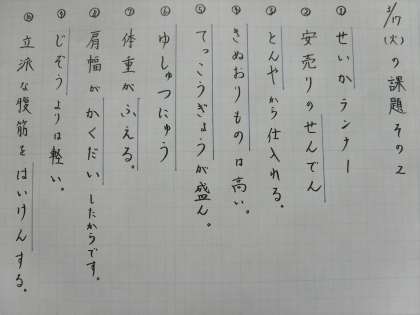 2/17(火)の課題 その2
① せいかランナー
② 安売りのせんでん
③ とんやから仕入れる。
④ きぬおりものは高い。
⑤ てっこうぎょうが盛ん。
⑥ ゆしゅつにゅう
⑦ 体重がふえる。
⑧ 肩幅がかくだいしたからです。
⑨ じぞうよりは軽い。
⑩ 立派な腹筋をはいけんする。